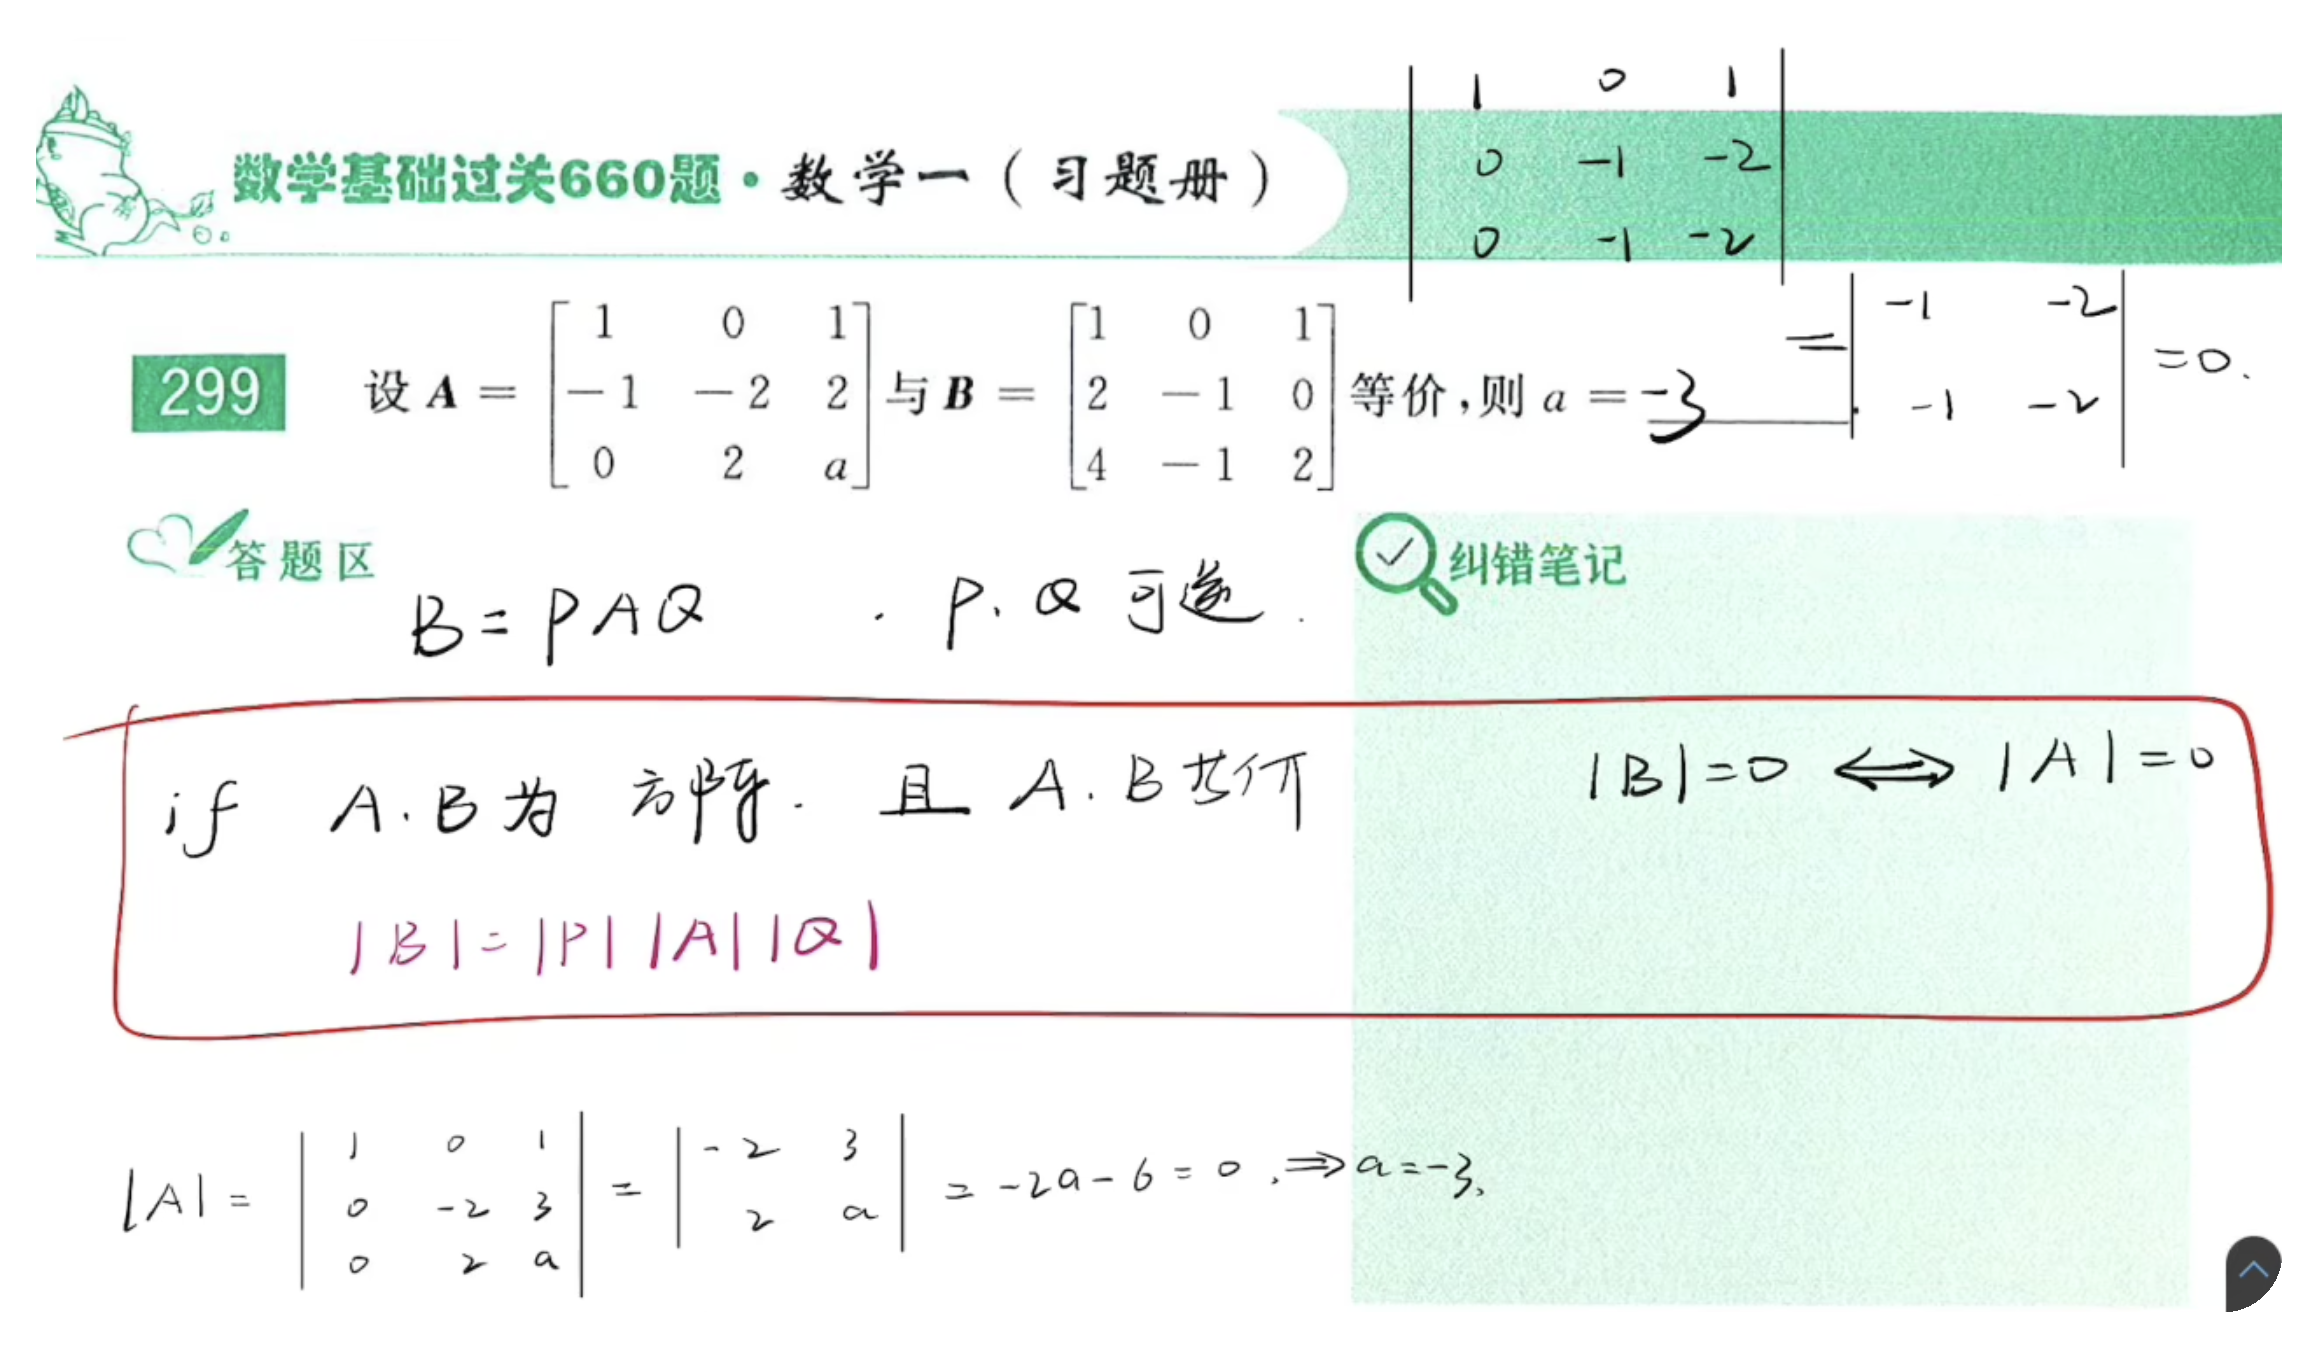 数学基础过关660题·数学一（习题册）
1 0 1
0 -1 -2
0 -1 -2
= | -1 -2
-1 -2 | =0.
299 设 A = [1 0 1; -1 -2 2; 0 2 a] 与 B = [1 0 1; 2 -1 0; 4 -1 2] 等价,则 a = -3
答题区
纠错笔记
B = PAQ . P. Q 可逆.
if A.B为方阵. 且 A.B等价 |B|=0 ⟺ |A|=0
|B|=|P||A||Q|
|A| = | 1 0 1; 0 -2 3; 0 2 a | = | -2 3; 2 a | = -2a-6=0, ⇒ a=-3,